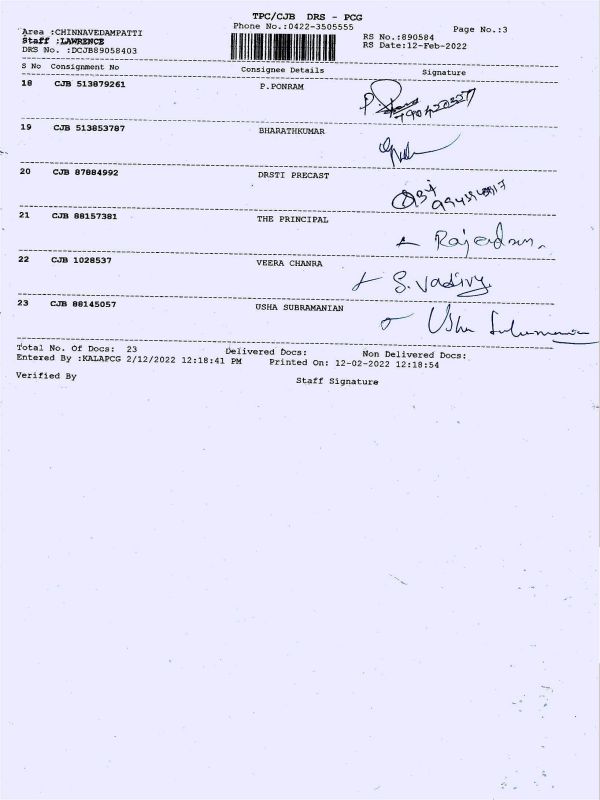 TPC/CJB DRS - PCG
Area :CHINNAVEDAMPATTI Phone No.:0422-3505555 Page No.:3
Staff :LAWRENCE RS No.:890584
DRS No. :DCJB89058403 RS Date:12-Feb-2022
S No Consignment No Consignee Details Signature
18 CJB 513879261 P.PONRAM
19 CJB 513853787 BHARATHKUMAR
20 CJB 87884992 DRSTI PRECAST
21 CJB 88157381 THE PRINCIPAL
22 CJB 1028537 VEERA CHANRA S.Vadivy
23 CJB 88145057 USHA SUBRAMANIAN Usha
Total No. Of Docs: 23 Delivered Docs: Non Delivered Docs:
Entered By :KALAPCG 2/12/2022 12:18:41 PM Printed On: 12-02-2022 12:18:54
Verified By Staff Signature